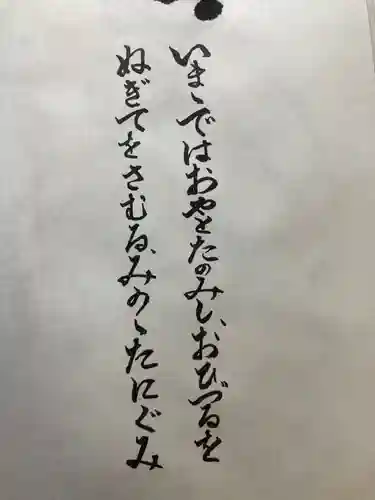 いまゝではおやとたのみし、おびづるを
ぬぎてをさむる、みのゝたにぐみ